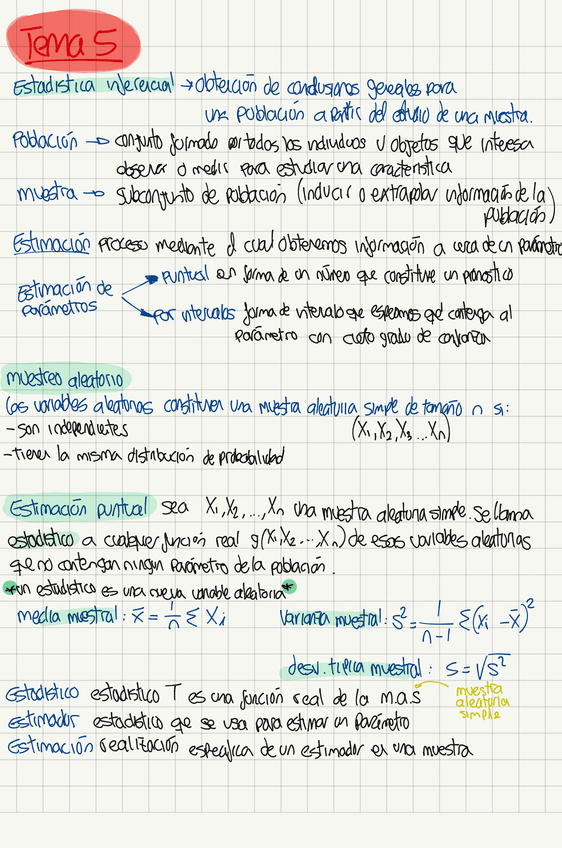 Tema 5
Estadística inferencial → obtención de conclusiones generales para
una población a partir del estudio de una muestra.
Población → conjunto formado por todos los individuos u objetos que interesa
observar o medir para estudiar una característica
muestra → subconjunto de población (inducir o extrapolar información de la
población)
Estimación proceso mediante el cual obtenemos información a cerca de un parámetro
Estimación de
parámetros
puntual en forma de un número que constituye un pronóstico
por intervalos forma de intervalo que esperamos que contenga al
parámetro con cierto grado de confianza
muestreo aleatorio
Las variables aleatorias constituyen una muestra aleatoria simple de tamaño n si:
- son independientes (X₁, X₂, X₃ ... Xn)
- tienen la misma distribución de probabilidad
Estimación puntual sea X₁, X₂, ..., Xn una muestra aleatoria simple. Se llama
estadístico a cualquier función real g(X₁, X₂ ... Xn) de esas variables aleatorias
que no contengan ningún parámetro de la población.
*un estadístico es una nueva variable aleatoria*
media muestral: x̄ = 1/n Σ Xi varianza muestral: S² = 1/(n-1) Σ(Xi - x̄)²
desv. típica muestral: S = √S²
Estadístico estadístico T es una función real de la m.a.s
muestra
aleatoria
simple
Estimador estadístico que se usa para estimar un parámetro
Estimación realización específica de un estimador en una muestra